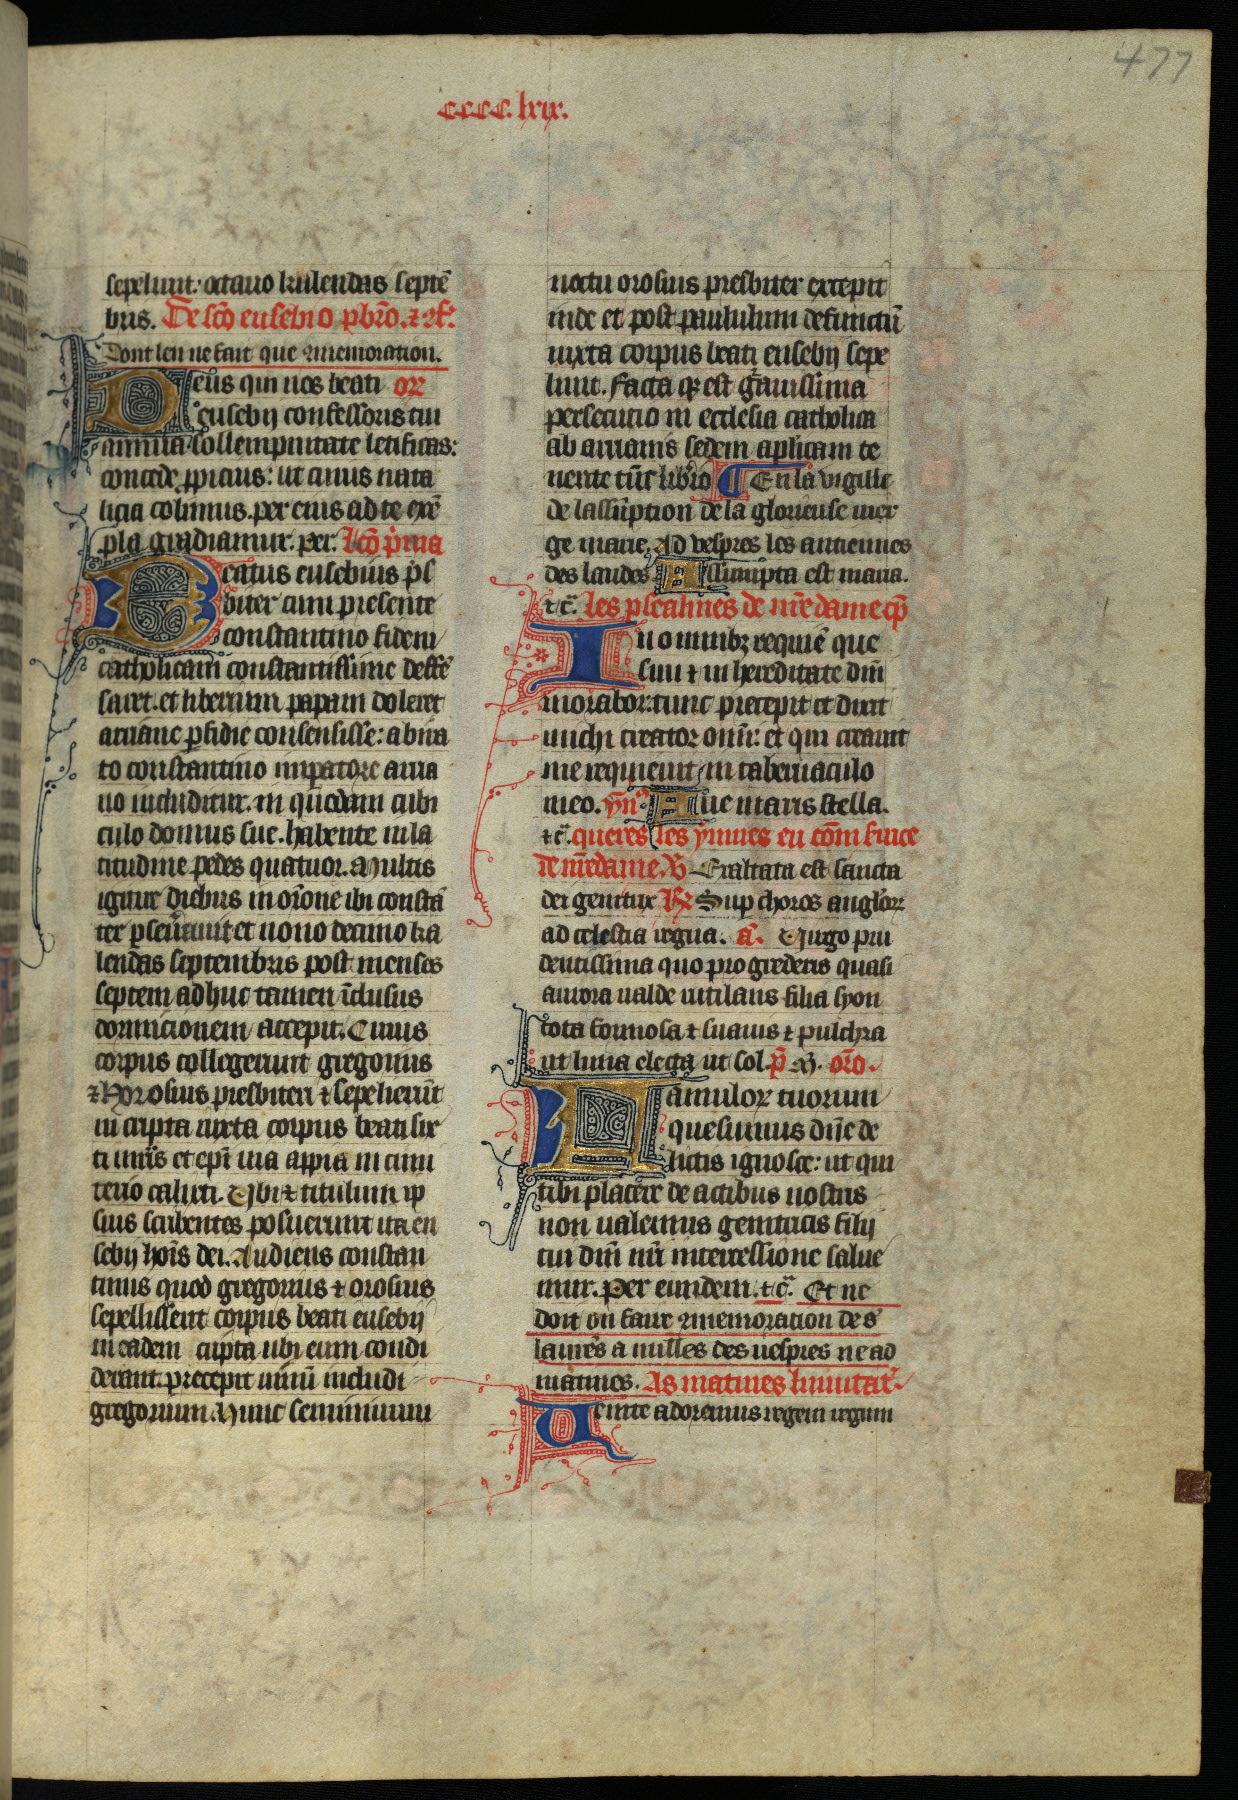 477
cccc. lxix.
sepeliunt: octauo kalendas septē
bris. De scō eusebio pb̄ro. ⁊ ꝯf.
Dont len ne fait que ꝯmemoration.
Deus qui nos beati or̄
eusebij confessoris tui
annua sollempnitate letificas:
concede ꝓpicius: ut cuius nata
licia colimus. per eius ad te exē
pla gradiamur. per. Lc̄o p̄ma
Beatus eusebius p̄s
biter cum presente
constantino fidem
catholicam constantissime deffē
saret. et liberium papam doleret
arriane ꝑfidie consensisse: ab ira
to constantino imꝑatore arria
no includitur. in quodam cubi
culo domus sue. habente in la
titudine pedes quatuor. Multis
igitur diebus in or̄one ibi constā
ter ꝑseuerauit et nono decimo ka
lendas septembris post menses
septem adhuc tamen īclusus
dormicionem accepit. Cuius
corpus collegerunt gregorius
⁊ orosius presbiteri ⁊ sepelierūt
in cripta iuxta corpus beati six
ti mr̄is et ep̄i uia appia in cimi
terio calixti. Ubi ⁊ titulum ip
sius scribentes posuerunt ita eu
sebij hoīs dei. Audiens constan
tinus quod gregorius ⁊ orosius
sepellissent corpus beati eusebij
in eadem cripta ubi eum condi
derant. precepit uiuū includi
gregorium. Hunc seminiuum
noctu orosius presbiter excepit
inde et post paululum defunctū
iuxta corpus beati eusebij sepe
liuit. Facta q; est gͣuissima
persecutio in ecclesia catholica
ab arrianis sedem aplicam te
nente tūc libīo En la vigille
de lassūption de la glorieuse uier
ge marie. Ad vespres les antiennes
des laudes Assumpta est maria.
⁊c̄. les psealmes de nr̄e dame cp̄
In omnibꝫ requiē que
siui ⁊ in hereditate dn̄i
morabor: tunc precepit et dixit
michi creator om̄i: et qui creauit
me requieuit in tabernaculo
meo. ȳn Aue maris stella.
⁊c̄. queres les ymnes en cōm seruice
de nr̄edame. ℣ Exaltata est sancta
dei genitrix ℟ Sup choros anglor̄
ad celestia regna. a. Uirgo pru
dentissima quo progrederis quasi
aurora ualde rutilans filia syon
tota formosa ⁊ suauis ⁊ pulchra
ut luna electa ut sol. p̄ M. or̄o.
Famulor tuorum
quesumus dn̄e de
lictis ignosce: ut qui
tibi placere de actibus nostris
non ualemus genitricis filij
tui dn̄i nr̄i intercessione salue
mur. Per eundem. ⁊c̄. Et ne
doit on faire ꝯmemoration de s
laurēs a nulles des uespres ne ad
matines. As matines Inuitat.
Uenite adoremus regem regum